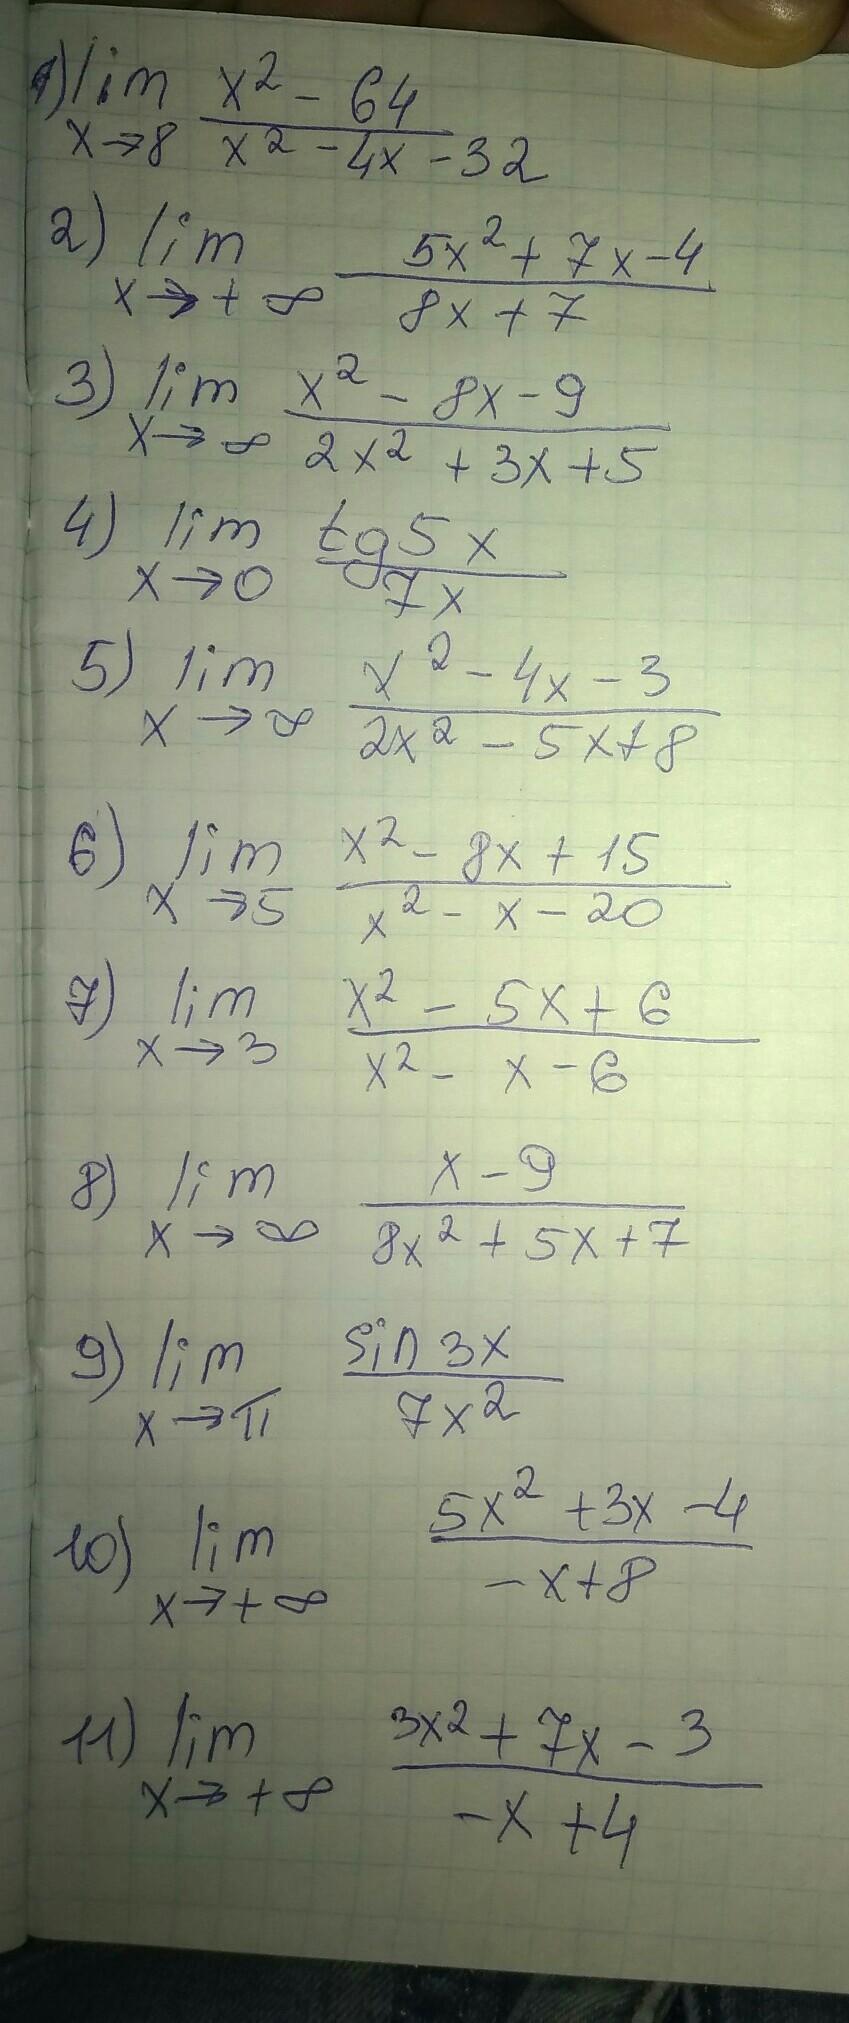 1) lim x² - 64
x→8 x² - 4x - 32
2) lim 5x² + 7x - 4
x→+∞ 8x + 7
3) lim x² - 8x - 9
x→∞ 2x² + 3x + 5
4) lim tg5x
x→0 7x
5) lim x² - 4x - 3
x→∞ 2x² - 5x + 8
6) lim x² - 8x + 15
x→5 x² - x - 20
7) lim x² - 5x + 6
x→3 x² - x - 6
8) lim x - 9
x→∞ 8x² + 5x + 7
9) lim sin 3x
x→π 7x²
10) lim 5x² + 3x - 4
x→+∞ -x + 8
11) lim 3x² + 7x - 3
x→+∞ -x + 4